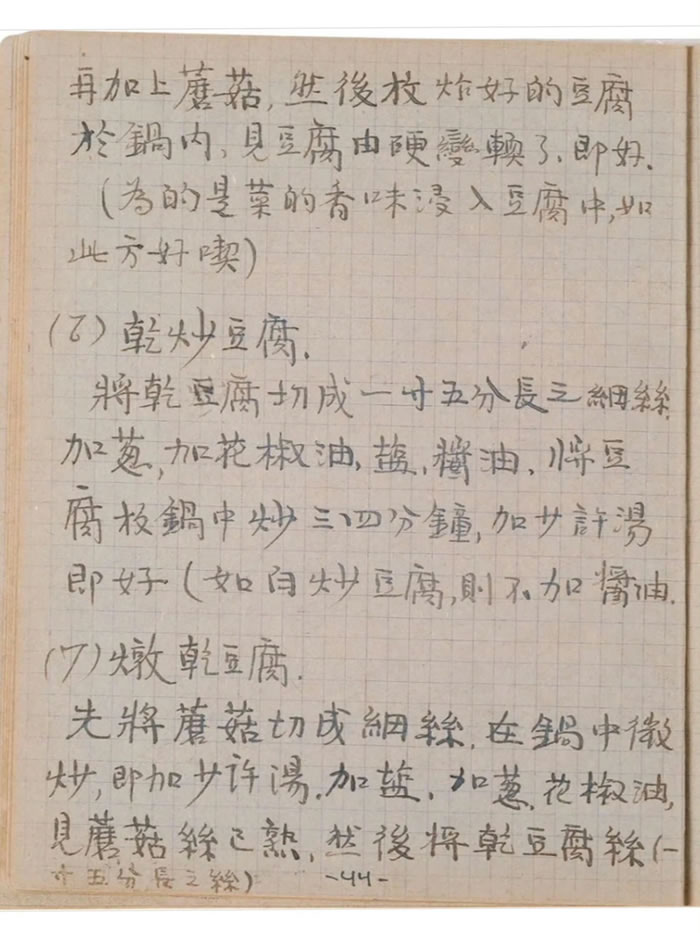 再加上蘑菇,然後放炸好的豆腐
於鍋內、見豆腐由硬變輭了、即好.
(為的是菜的香味浸入豆腐中,如
此方好喫)
(6)乾炒豆腐.
將乾豆腐切成一寸五分長之細絲,
加蔥,加花椒油,鹽,醬油、將豆
腐放鍋中炒三四分鐘,加少許湯
即好(如白炒豆腐,則不加醬油.
(7)燉乾豆腐.
先將蘑菇切成細絲,在鍋中微
炒,即加少許湯.加鹽、加蔥,花椒油,
見蘑菇絲已熟,然後將乾豆腐絲(一
寸五分長之絲)
-44-